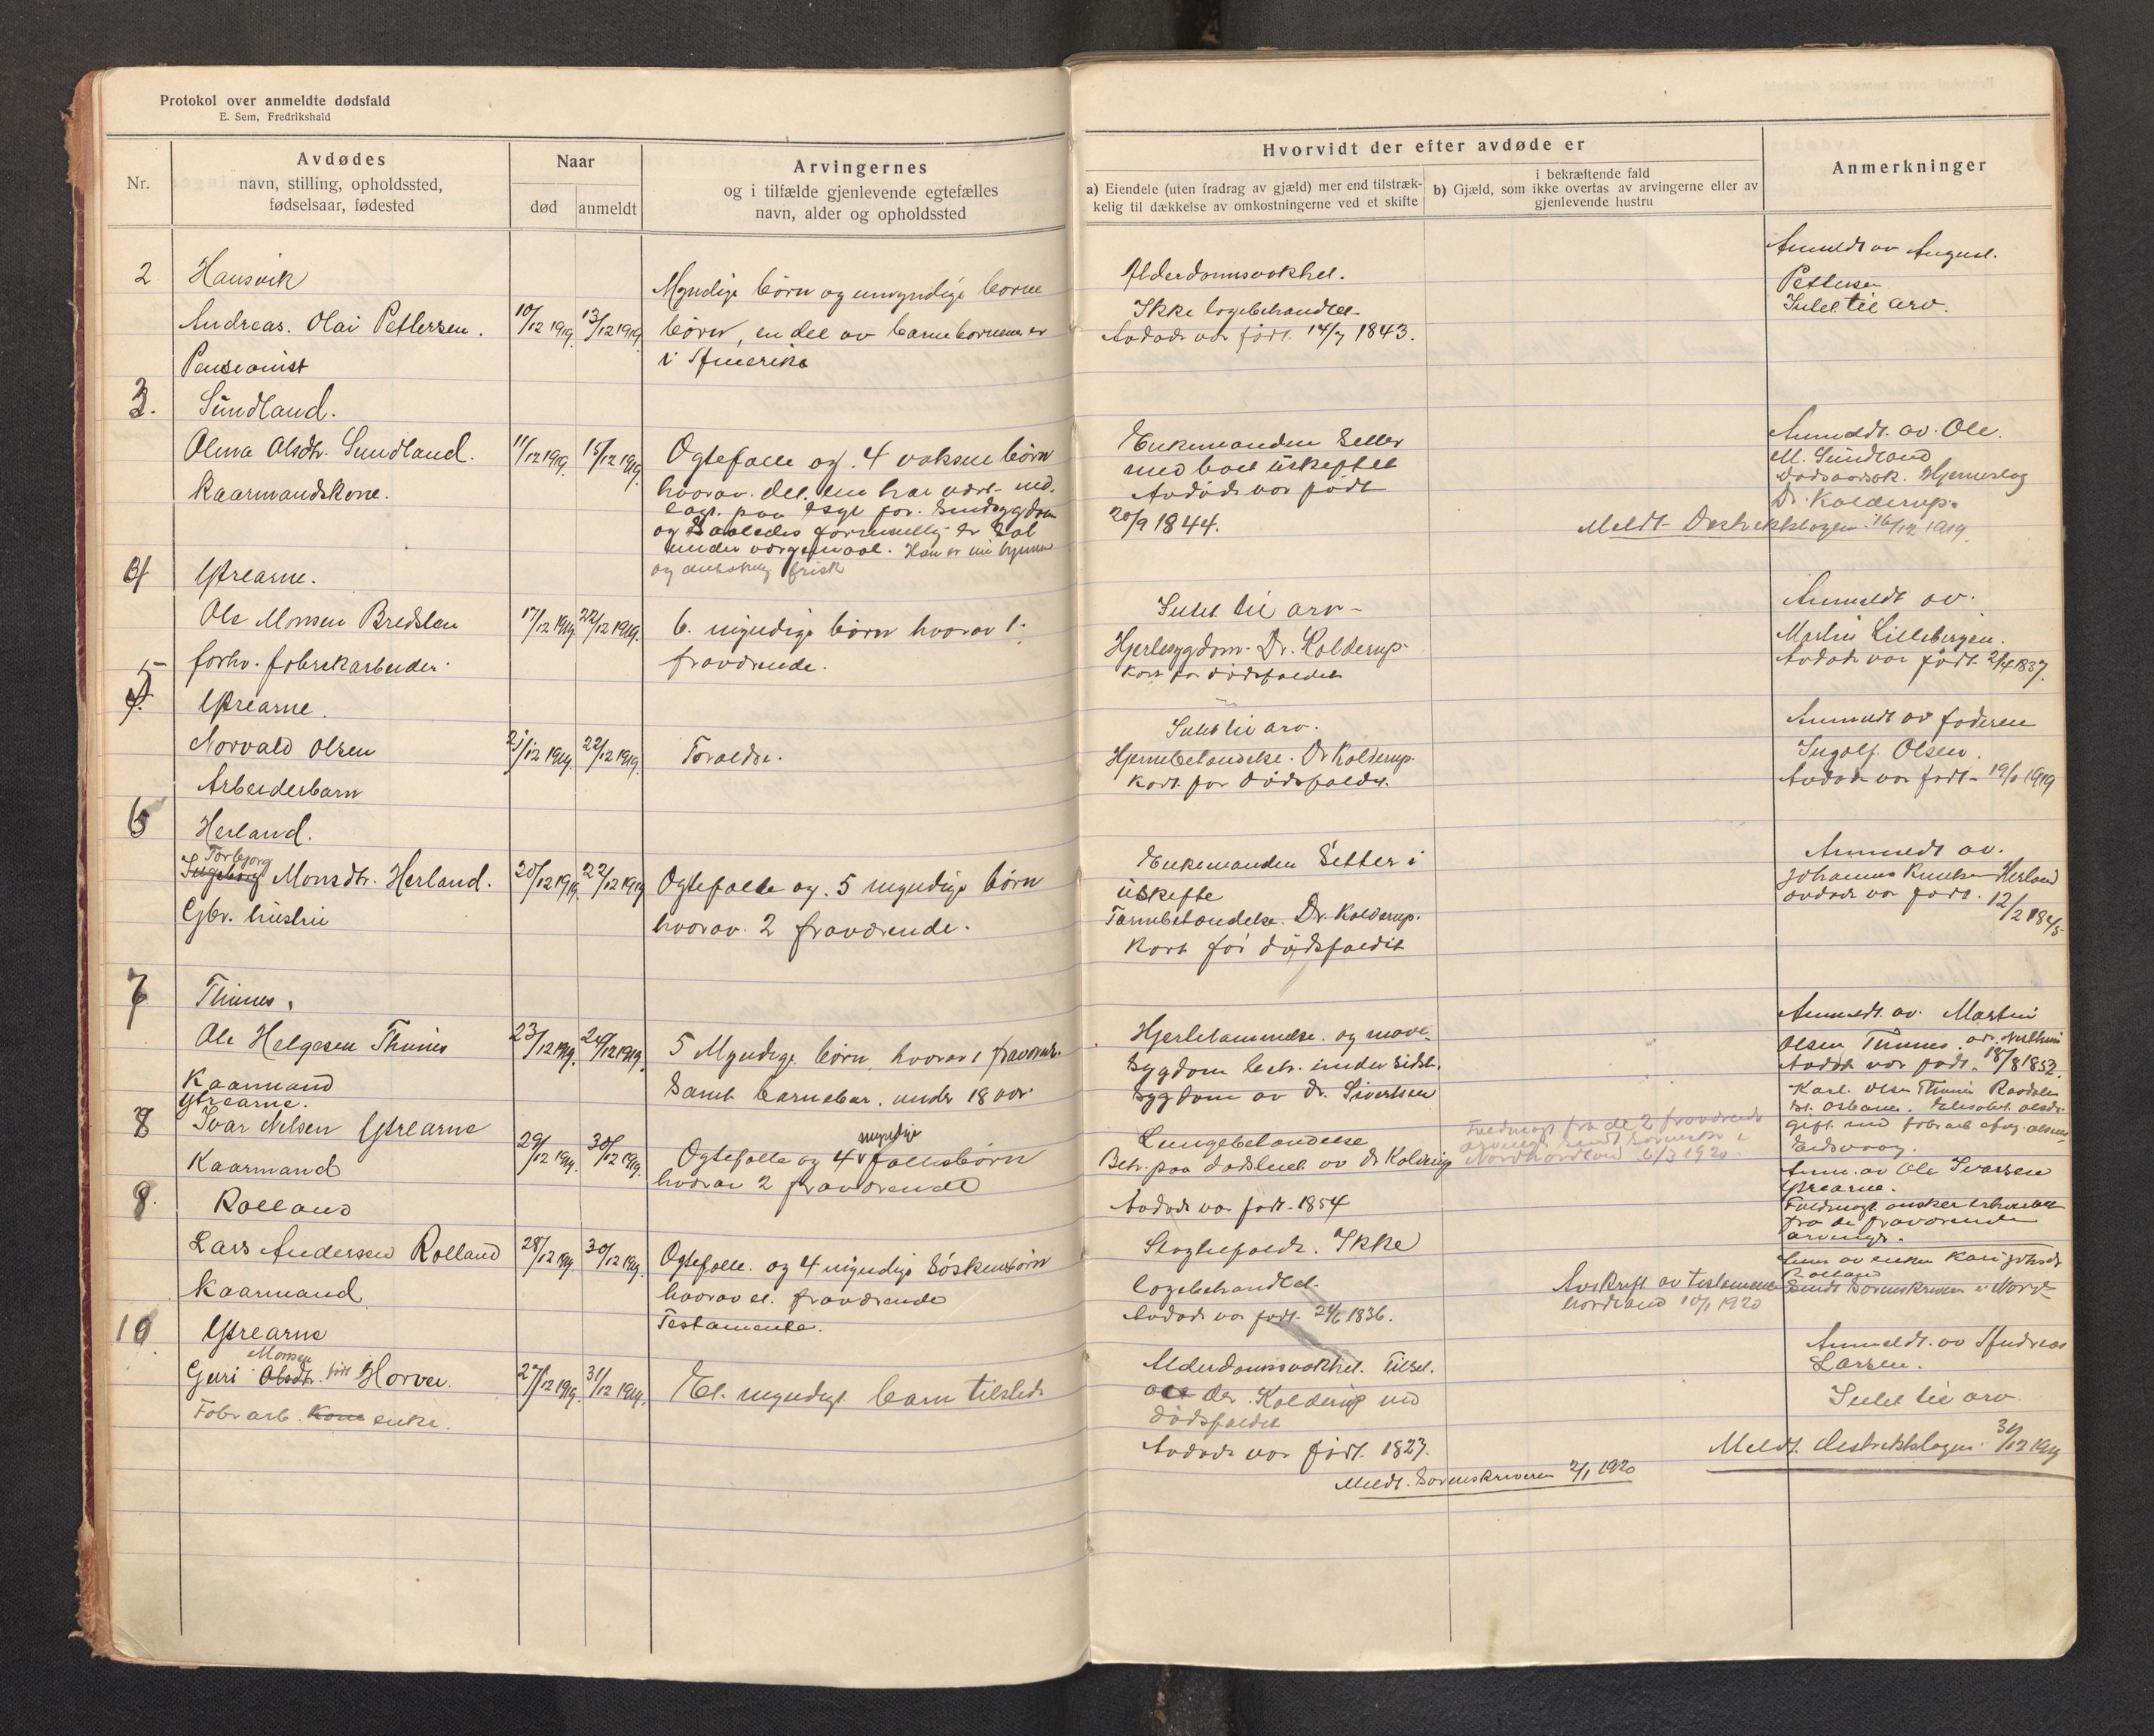 Protokol over anmeldte dødsfald
E. Sem, Fredrikshald
Nr.
Avdødes
navn, stilling, opholdssted,
fødselsaar, fødested
Naar
død
anmeldt
Arvingernes
og i tilfælde gjenlevende egtefælles
navn, alder og opholdssted
2
Hausvik
Andreas. Olai Pettersen.
Pensionist
10/12 1919.
13/12 1919.
Myndige børn og umyndige barne
børn, en del av barnebørnene er
i Amerika
3.
Sundland.
Olina Olsdtr. Sundland.
Kaarmandskone.
11/12 1919.
15/12 1919.
Ogtefælle og. 4 voksne børn
hvorav. det. ene har vært ind.
lagt. paa Asyl for. Sindsygdom
og saaledes formentlig er sat
under værgemaal. Han er nu hjemme
og frisk
4
Ytrearne.
Ole Monsen Bredsten
forhv. fabrikarbeider.
17/12 1919.
22/12 1919.
6. myndige børn hvorav 1.
fraværende.
5
Ytrearne.
Norvald Olsen
Arbeiderbarn
21/12 1919.
22/12 1919.
Forældre.
6
Herland.
Torbjorg
Ingeborg Monsdtr. Herland.
Gbr. hustru
20/12 1919.
22/12 1919
Ogtefælle og. 5 myndige børn
hvorav. 2 fraværende.
7
Thunes.
Ole Helgesen Thunes
Kaarmand
23/12 1919.
24/12 1919.
5 Myndige børn, hvorav 1 fraværer.
Samt barnebar. under 18 aar
8
Ytrearne.
Ivar Nilsen Ytrearne
Kaarmand
29/12 1919.
30/12 1919.
myndige
Ogtefælle og 4 fællesbørn
hvorav 2 fraværende
9.
Rolland
Lars Andersen Rolland
Kaarmand
28/12 1919.
30/12 1919.
Ogtefælle. og 4 myndige Søskenbørn
hvorav et. fraværende
Testamente.
10
Ytrearne
Monsen
Guri Olsdtr. født Horvei.
Fabr arb. Kone enke.
27/12 1919.
31/12 1919.
Et. myndigt barn tilstede
Hvorvidt der efter avdøde er
a) Eiendele (uten fradrag av gjæld) mer end tilstræk-
kelig til dækkelse av omkostningerne ved et skifte
i bekræftende fald
b) Gjæld, som ikke overtas av arvingerne eller av
gjenlevende hustru
Anmerkninger
Alderdomssvakhet.
Ikke lægebehandlet
Avdøde var født. 14/7 1843.
Anmeldt av August.
Pettersen
Intet til arv.
Enkemanden sitter
med boet uskiftet
Avdøde var født
20/9 1844.
Anmeldt. av. Ole.
M. Sundland
Dødsaarsak. Hjerneslag
Dr. Kolderup.
Meldt Distriktslægen. 16/12 1919.
Intet til arv-
Hjertesygdom. Dr. Kolderup.
Kort før dødsfaldet
Anmeldt av.
Martin Lillebergen.
Avdøde var født. 2/4 1837.
Intet til arv.
Hjernebetændelse. Dr Kolderup.
Kort. før dødsfaldet.
Anmeldt av faderen
Ingolf Olsen.
Avdøde var født 1919
Enkemanden Sitter i
uskifte
Tarmbetændelse. Dr. Kolderup.
Kort før dødsfaldet
Anmeldt av.
Johannes Knutsen Herland
avdøde var født. 12/2 1845
Hjertelammelse. og mave-
sygdom beh. under sidst.
Sygdom av Dr. Sivertsen
Anmeldt. av. Martin
Olsen Thunes.
Avdøde var født. 18/8 1852.
Karl. Olsen Thunes
gift. med fabr arb
Eidsvaag.
Lungebetændelse
Beh. paa dødsleiet av dr Kolderup
Avdøde var født. 1854
Fuldmagt fra de 2 fraværende
arvinger sendt Sorenskr. i
Nordhordland 6/3 1920.
Anm. av Ole Ivarsen
Ytrearne.
Fuldmagt ønskes
fra de fraværende
arvinger.
Slagtilfælde. Ikke
lægebehandlet.
Avdøde var født. 24/6 1836.
Avskrift av testamente
sendt Sorenskriveren i Nord-
hordland 10/1 1920
Anm av enken Kari
Rolland
Alderdomssvakhet. Tilset.
av dr. Kolderup ved
dødsfaldet
Avdøde var født. 1823.
Meldt. Sorenskriveren 2/1 1920
Anmeldt. av Andreas
Larsen.
Intet til arv.
Meldt. distriktslægen. 31/12 1919